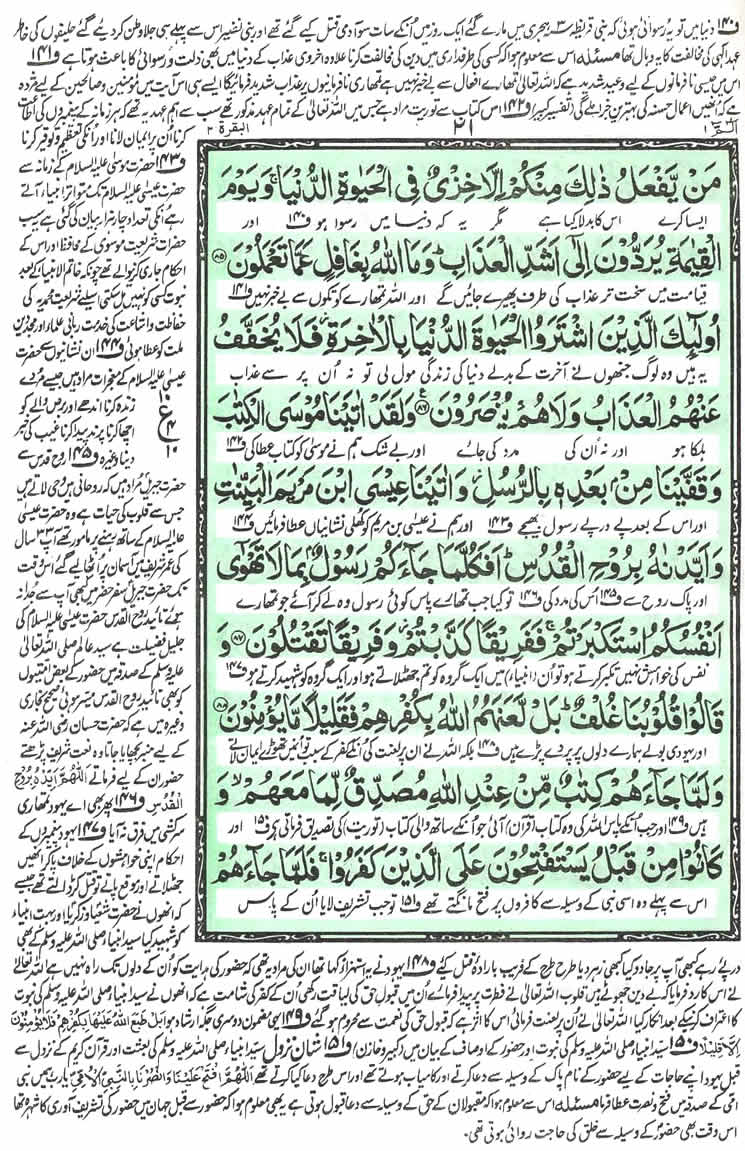 ف۱۴۰ دنیا میں تو یہ رسوائی ہوئی کہ بنی قریظہ ۳ ہجری میں مارے گئے ایک روز میں ان کے سات سو آدمی قتل کیے گئے تھے اور بنی نضیر اس سے پہلے ہی جلا وطن کر دیے گئے حلیفوں کی خاطر
عہد الٰہی کی مخالفت کا یہ وبال تھا مسئلہ اس سے معلوم ہوا کہ کسی کی طرفداری میں دین کی مخالفت کرنا علاوہ اخروی عذاب کے دنیا میں بھی ذلت و رسوائی کا باعث ہوتا ہے ف۱۴۱
اس میں جیسی نافرمانوں کے لیے وعید شدید ہے کہ اللہ تعالیٰ تمہارے افعال سے بے خبر نہیں ہے تمہاری نافرمانیوں پر عذاب شدید فرمائیگا ایسے ہی اس آیت میں مؤمنین و صالحین کے لیے مژدہ
ہے کہ انھیں اعمال حسنہ کی بہترین جزا ملے گی (تفسیر کبیر) ف۱۴۲ اس کتاب سے توریت مراد ہے جس میں اللہ تعالیٰ کے تمام عہد مذکور تھے سب سے اہم عہد یہ تھے کہ ہر زمانہ کے پیغمبروں کی اطاعت
الٓمّٓ ۱
۲۱
البقرۃ ۲
مَنْ يَّفْعَلُ ذٰلِكَ مِنْكُمْ اِلَّا خِزْىٌ فِى الْحَيٰوةِ الدُّنْيَا ۚ وَيَوْمَ
ایسا کرے اس کا بدلہ کیا ہے مگر یہ کہ دنیا میں رسوا ہو ف۱۴۰ اور
الْقِيٰمَةِ يُرَدُّوْنَ اِلٰٓى اَشَدِّ الْعَذَابِ ؕ وَمَا اللّٰهُ بِغَافِلٍ عَمَّا تَعْمَلُوْنَ ۸۵
قیامت میں سخت تر عذاب کی طرف پھیرے جائیں گے اور اللہ تمہارے کوتکوں سے بے خبر نہیں ف۱۴۱
اُولٰٓئِكَ الَّذِيْنَ اشْتَرَوُا الْحَيٰوةَ الدُّنْيَا بِالْاٰخِرَةِ ۫ فَلَا يُخَفَّفُ
یہ ہیں وہ لوگ جنھوں نے آخرت کے بدلے دنیا کی زندگی مول لی تو نہ ان پر سے عذاب
عَنْهُمُ الْعَذَابُ وَلَا هُمْ يُنْصَرُوْنَ ۸۶ وَلَقَدْ اٰتَيْنَا مُوْسَى الْكِتٰبَ
ہلکا ہو اور نہ ان کی مدد کی جائے اور بے شک ہم نے موسیٰ کو کتاب عطا کی ف۱۴۲
وَقَفَّيْنَا مِنْۢ بَعْدِهٖ بِالرُّسُلِ ؗ وَاٰتَيْنَا عِيْسَى ابْنَ مَرْيَمَ الْبَيِّنٰتِ
اور اس کے بعد پے در پے رسول بھیجے ف۱۴۳ اور ہم نے عیسیٰ بن مریم کو کھلی نشانیاں عطا فرمائیں ف۱۴۴
وَاَيَّدْنٰهُ بِرُوْحِ الْقُدُسِ ؕ اَفَكُلَّمَا جَآءَكُمْ رَسُوْلٌۢ بِمَا لَا تَهْوٰٓى
اور پاک روح سے ف۱۴۵ اس کی مدد کی ف۱۴۶ تو کیا جب تمہارے پاس کوئی رسول وہ لے کر آئے جو تمہارے
اَنْفُسُكُمُ اسْتَكْبَرْتُمْ ۚ فَفَرِيْقًا كَذَّبْتُمْ ؗ وَفَرِيْقًا تَقْتُلُوْنَ ۸۷ وَ
نفس کی خواہش نہیں تکبر کرتے ہو تو ان (انبیاء) میں ایک گروہ کو تم جھٹلاتے ہو اور ایک گروہ کو شہید کرتے ہو ف۱۴۷
قَالُوْا قُلُوْبُنَا غُلْفٌ ؕ بَلْ لَّعَنَهُمُ اللّٰهُ بِكُفْرِهِمْ فَقَلِيْلًا مَّا يُؤْمِنُوْنَ ۸۸
اور یہودی بولے ہمارے دلوں پر پردے پڑے ہیں ف۱۴۸ بلکہ اللہ نے ان پر لعنت کی ان کے کفر کے سبب تو ان میں تھوڑے ایمان لاتے
وَلَمَّا جَآءَهُمْ كِتٰبٌ مِّنْ عِنْدِ اللّٰهِ مُصَدِّقٌ لِّمَا مَعَهُمْ ۙ وَ
ہیں ف۱۴۹ اور جب ان کے پاس اللہ کی وہ کتاب (قرآن) آئی جو ان کے ساتھ والی کتاب (توریت) کی تصدیق فرماتی ہے ف۱۵۰ اور
كَانُوْا مِنْ قَبْلُ يَسْتَفْتِحُوْنَ عَلَى الَّذِيْنَ كَفَرُوْا ۚ فَلَمَّا جَآءَهُمْ
اس سے پہلے وہ اسی نبی کے وسیلہ سے کافروں پر فتح مانگتے تھے ف۱۵۱ تو جب تشریف لایا ان کے پاس
کرنا ان پر ایمان لانا اور انکی تعظیم و توقیر کرنا
ف۱۴۳ حضرت موسیٰ علیہ السلام کے زمانہ سے
حضرت عیسیٰ علیہ السلام تک متواتر انبیاء آتے
رہے انکی تعداد چار ہزار بیان کی گئی ہے یہ سب
حضرات شریعت موسوی کے محافظ اور اس کے
احکام جاری کرنے والے تھے چونکہ خاتم الانبیاء کے بعد
نبوت کسی کو نہیں مل سکتی اسلیے شریعت محمدیہ کی
حفاظت و اشاعت کی خدمت ربانی علماء اور مجددین
ملت کو عطا ہوئی ف۱۴۴ ان نشانیوں سے حضرت
عیسیٰ علیہ السلام کے معجزات مراد ہیں جیسے مردے
زندہ کرنا اندھے اور برص والے کو
اچھا کرنا پرند پیدا کرنا غیب کی خبر
دینا وغیرہ ف۱۴۵ روح قدس سے
۱۰
ع
۴
۱۰
حضرت جبریل مراد ہیں کہ روحانی ہیں وحی لاتے ہیں
جس سے قلوب کی حیات ہے وہ حضرت عیسیٰ
علیہ السلام کے ساتھ رہنے پر مامور تھے آپ ۳۳ سال
کی عمر شریف میں آسمان پر اٹھا لیے گئے اس وقت
تک حضرت جبریل سفر حضر میں کبھی آپ سے جدا نہ
ہوئے تائید روح القدس حضرت عیسیٰ علیہ السلام کی
جلیل فضیلت ہے سید عالم صلی اللہ تعالیٰ
علیہ وسلم کے صدقہ میں حضور کے بعض امتیوں
کو بھی تائید روح القدس میسر ہوئی صحیح بخاری
وغیرہ میں ہے کہ حضرت حسان رضی اللہ عنہ
کے لیے منبر بچھایا جاتا وہ نعت شریف پڑھتے
حضور ان کے لیے فرماتے اَللّٰهُمَّ اَيِّدْهُ بِرُوْحِ
الْقُدُسِ ف۱۴۶ پھر بھی اے یہود تمہاری
سرکشی میں فرق نہ آیا ف۱۴۷ یہود پیغمبروں کے
احکام اپنی خواہشوں کے خلاف پا کر انھیں
جھٹلاتے اور موقع پاتے تو قتل کر ڈالتے تھے جیسے
کہ انھوں نے حضرت شعیا و زکریا اور بہت انبیاء
کو شہید کیا سید انبیاء صلی اللہ علیہ وسلم کے بھی
درپے رہے کبھی آپ پر جادو کیا کبھی زہر دیا طرح طرح کے فریب بارادۂ قتل کیے ف۱۴۸ یہود نے یہ استہزاء کہا تھا ان کی مراد یہ تھی کہ حضور کی ہدایت کو ان کے دلوں تک راہ نہیں ہے اللہ تعالیٰ
نے اس کا رد فرمایا کہ بے دین جھوٹے ہیں قلوب اللہ تعالیٰ نے فطرت پر پیدا فرمائے ان میں قبول حق کی لیاقت رکھی ان کے کفر کی شامت ہے کہ انھوں نے سید انبیاء صلی اللہ علیہ وسلم کی نبوت
کا اعتراف کرنے کے بعد انکار کیا اللہ تعالیٰ نے ان پر لعنت فرمائی اس کا اثر ہے کہ قبول حق کی نعمت سے محروم ہو گئے ف۱۴۹ یہی مضمون دوسری جگہ ارشاد ہوا بَلْ طَبَعَ اللّٰهُ عَلَيْهَا بِكُفْرِهِمْ فَلَا يُؤْمِنُوْنَ
اِلَّا قَلِيْلًا ف۱۵۰ سید انبیاء صلی اللہ علیہ وسلم کی نبوت اور حضور کے اوصاف کے بیان میں (کبیر و خازن) ف۱۵۱ شان نزول سید انبیاء صلی اللہ علیہ وسلم کی بعثت اور قرآن کریم کے نزول سے
قبل یہود اپنے حاجات کے لیے حضور کے نام پاک کے وسیلہ سے دعا کرتے اور کامیاب ہوتے تھے اور اس طرح دعا کیا کرتے تھے اَللّٰهُمَّ افْتَحْ عَلَيْنَا وَانْصُرْنَا بِالنَّبِيِّ الْاُمِّيِّ یا رب ہمیں نبی
امی کے صدقہ میں فتح و نصرت عطا فرما مسئلہ اس سے معلوم ہوا کہ مقبولان حق کے وسیلہ سے دعا قبول ہوتی ہے یہ بھی معلوم ہوا کہ حضور سے قبل جہان میں حضور کی تشریف آوری کا شہرہ تھا
اس وقت بھی حضور کے وسیلہ سے خلق کی حاجت روائی ہوتی تھی۔